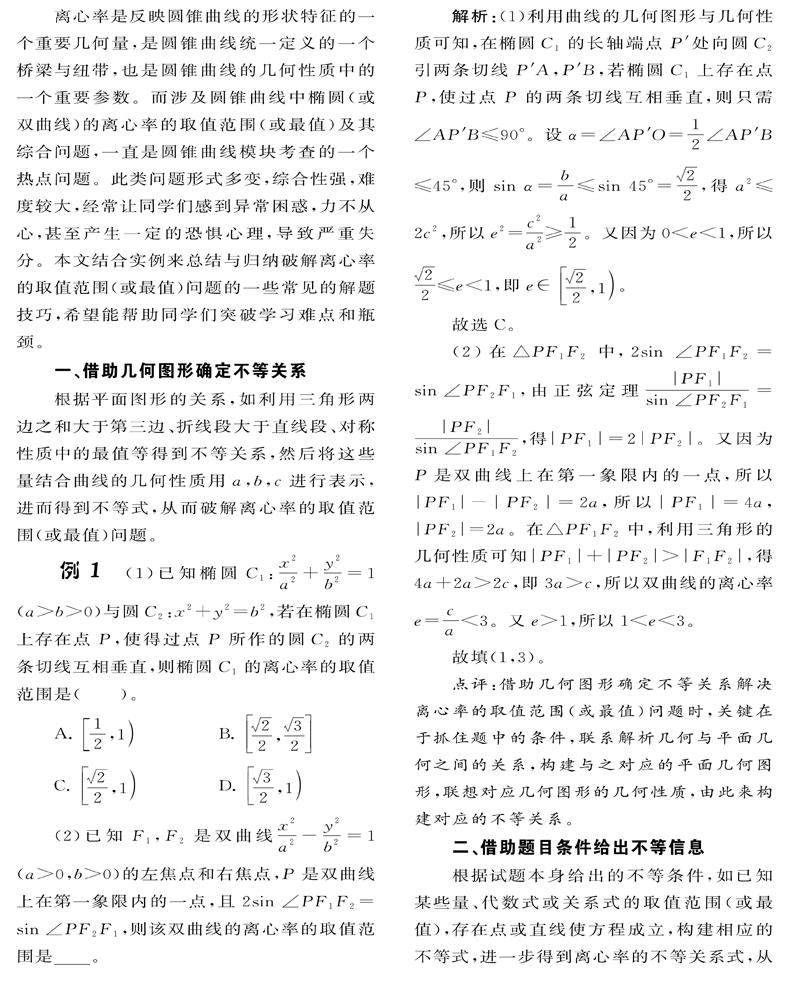 离心率是反映圆锥曲线的形状特征的一
个重要几何量,是圆锥曲线统一定义的一个
桥梁与纽带,也是圆锥曲线的几何性质中的
一个重要参数。而涉及圆锥曲线中椭圆(或
双曲线)的离心率的取值范围(或最值)及其
综合问题,一直是圆锥曲线模块考查的一个
热点问题。此类问题形式多变,综合性强,难
度较大,经常让同学们感到异常困惑,力不从
心,甚至产生一定的恐惧心理,导致严重失
分。本文结合实例来总结与归纳破解离心率
的取值范围(或最值)问题的一些常见的解题
技巧,希望能帮助同学们突破学习难点和瓶
颈。
一、借助几何图形确定不等关系
根据平面图形的关系,如利用三角形两
边之和大于第三边、折线段大于直线段、对称
性质中的最值等得到不等关系,然后将这些
量结合曲线的几何性质用 a,b,c 进行表示,
进而得到不等式,从而破解离心率的取值范
围(或最值)问题。
例 1 (1)已知椭圆 C₁:x²/a²+y²/b²=1
(a>b>0)与圆 C₂:x²+y²=b²,若在椭圆 C₁
上存在点 P,使得过点 P 所作的圆 C₂ 的两
条切线互相垂直,则椭圆 C₁ 的离心率的取值
范围是( )。
A. [1/2,1) B. [√2/2,√3/2]
C. [√2/2,1) D. [√3/2,1)
(2)已知 F₁,F₂ 是双曲线 x²/a²-y²/b²=1
(a>0,b>0)的左焦点和右焦点,P 是双曲线
上在第一象限内的一点,且 2sin ∠PF₁F₂=
sin ∠PF₂F₁,则该双曲线的离心率的取值范
围是____。
解析:(1)利用曲线的几何图形与几何性
质可知,在椭圆 C₁ 的长轴端点 P′处向圆 C₂
引两条切线 P′A,P′B,若椭圆 C₁ 上存在点
P,使过点 P 的两条切线互相垂直,则只需
∠AP′B≤90°。设 α=∠AP′O=1/2∠AP′B
≤45°,则 sin α=b/a≤sin 45°=√2/2,得 a²≤
2c²,所以 e²=c²/a²≥1/2。又因为 0<e<1,所以
√2/2≤e<1,即 e∈[√2/2,1)。
故选 C。
(2) 在 △PF₁F₂ 中, 2sin ∠PF₁F₂=
sin ∠PF₂F₁,由正弦定理 |PF₁|/sin ∠PF₂F₁=
|PF₂|/sin ∠PF₁F₂,得|PF₁|=2|PF₂|。又因为
P 是双曲线上在第一象限内的一点,所以
|PF₁|-|PF₂|=2a,所以|PF₁|=4a,
|PF₂|=2a。在△PF₁F₂ 中,利用三角形的
几何性质可知|PF₁|+|PF₂|>|F₁F₂|,得
4a+2a>2c,即 3a>c,所以双曲线的离心率
e=c/a<3。又 e>1,所以 1<e<3。
故填(1,3)。
点评:借助几何图形确定不等关系解决
离心率的取值范围(或最值)问题时,关键在
于抓住题中的条件,联系解析几何与平面几
何之间的关系,构建与之对应的平面几何图
形,联想对应几何图形的几何性质,由此来构
建对应的不等关系。
二、借助题目条件给出不等信息
根据试题本身给出的不等条件,如已知
某些量、代数式或关系式的取值范围(或最
值),存在点或直线使方程成立,构建相应的
不等式,进一步得到离心率的不等关系式,从